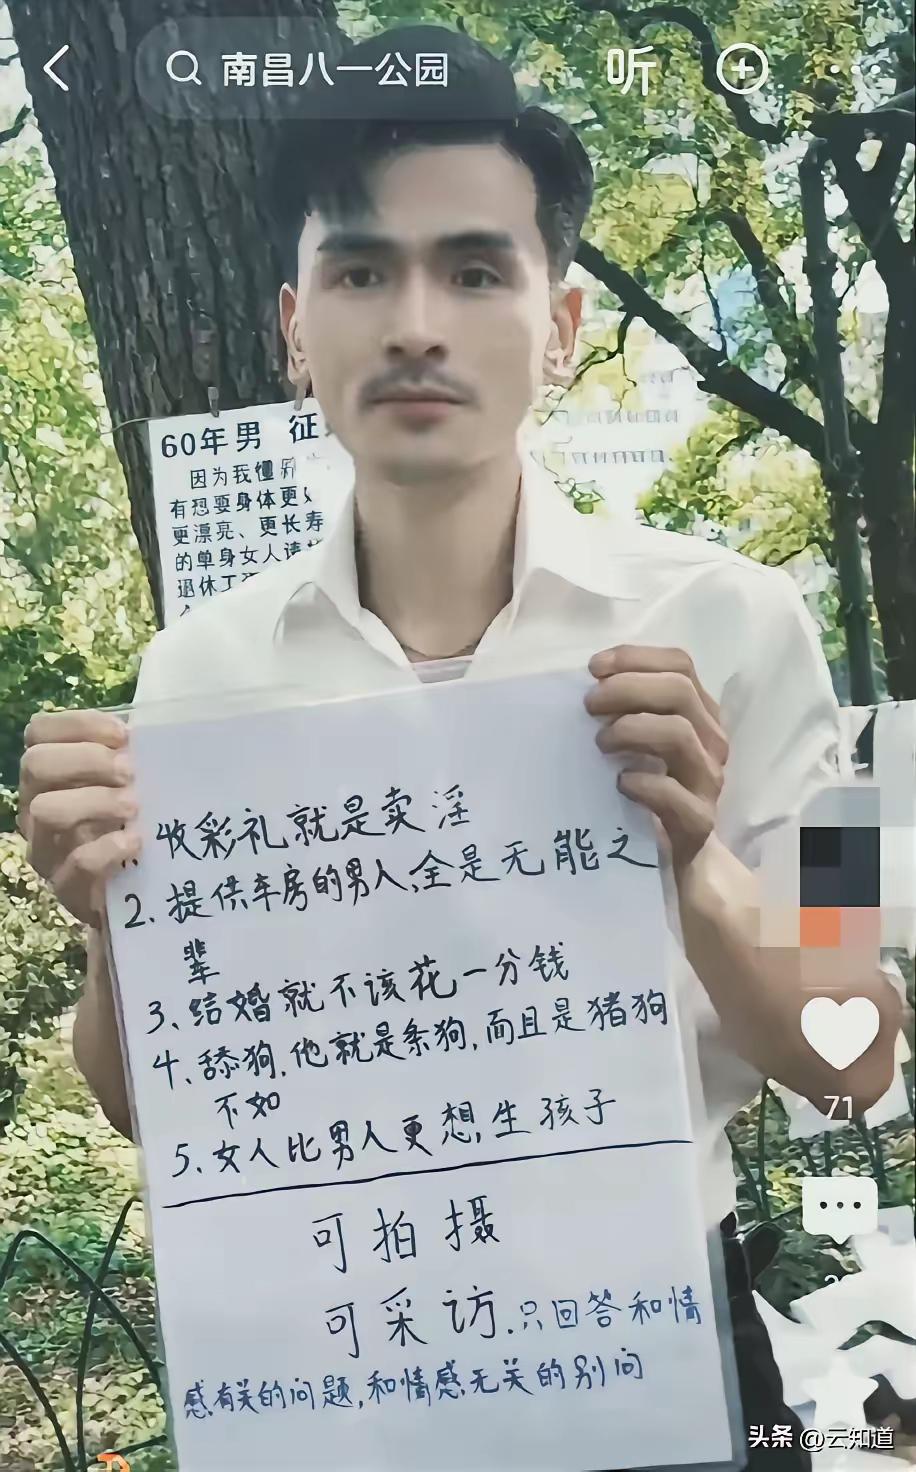 南昌八一公园
听
60年男 征
因为我懂
有想要身体更
更漂亮、更长寿
的单身女人请
退休工
1. 收彩礼就是卖淫
2. 提供车房的男人,全是无能之
辈
3、结婚就不该花一分钱
4、舔狗,他就是条狗,而且是猪狗
不如
5、女人比男人更想生孩子
可拍摄
可采访.只回答和情
感有关的问题,和情感无关的别问
71
头条 @云知道